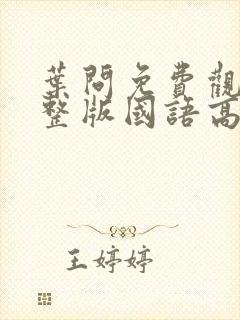 葉問免費觀
整版國語高
王婷婷